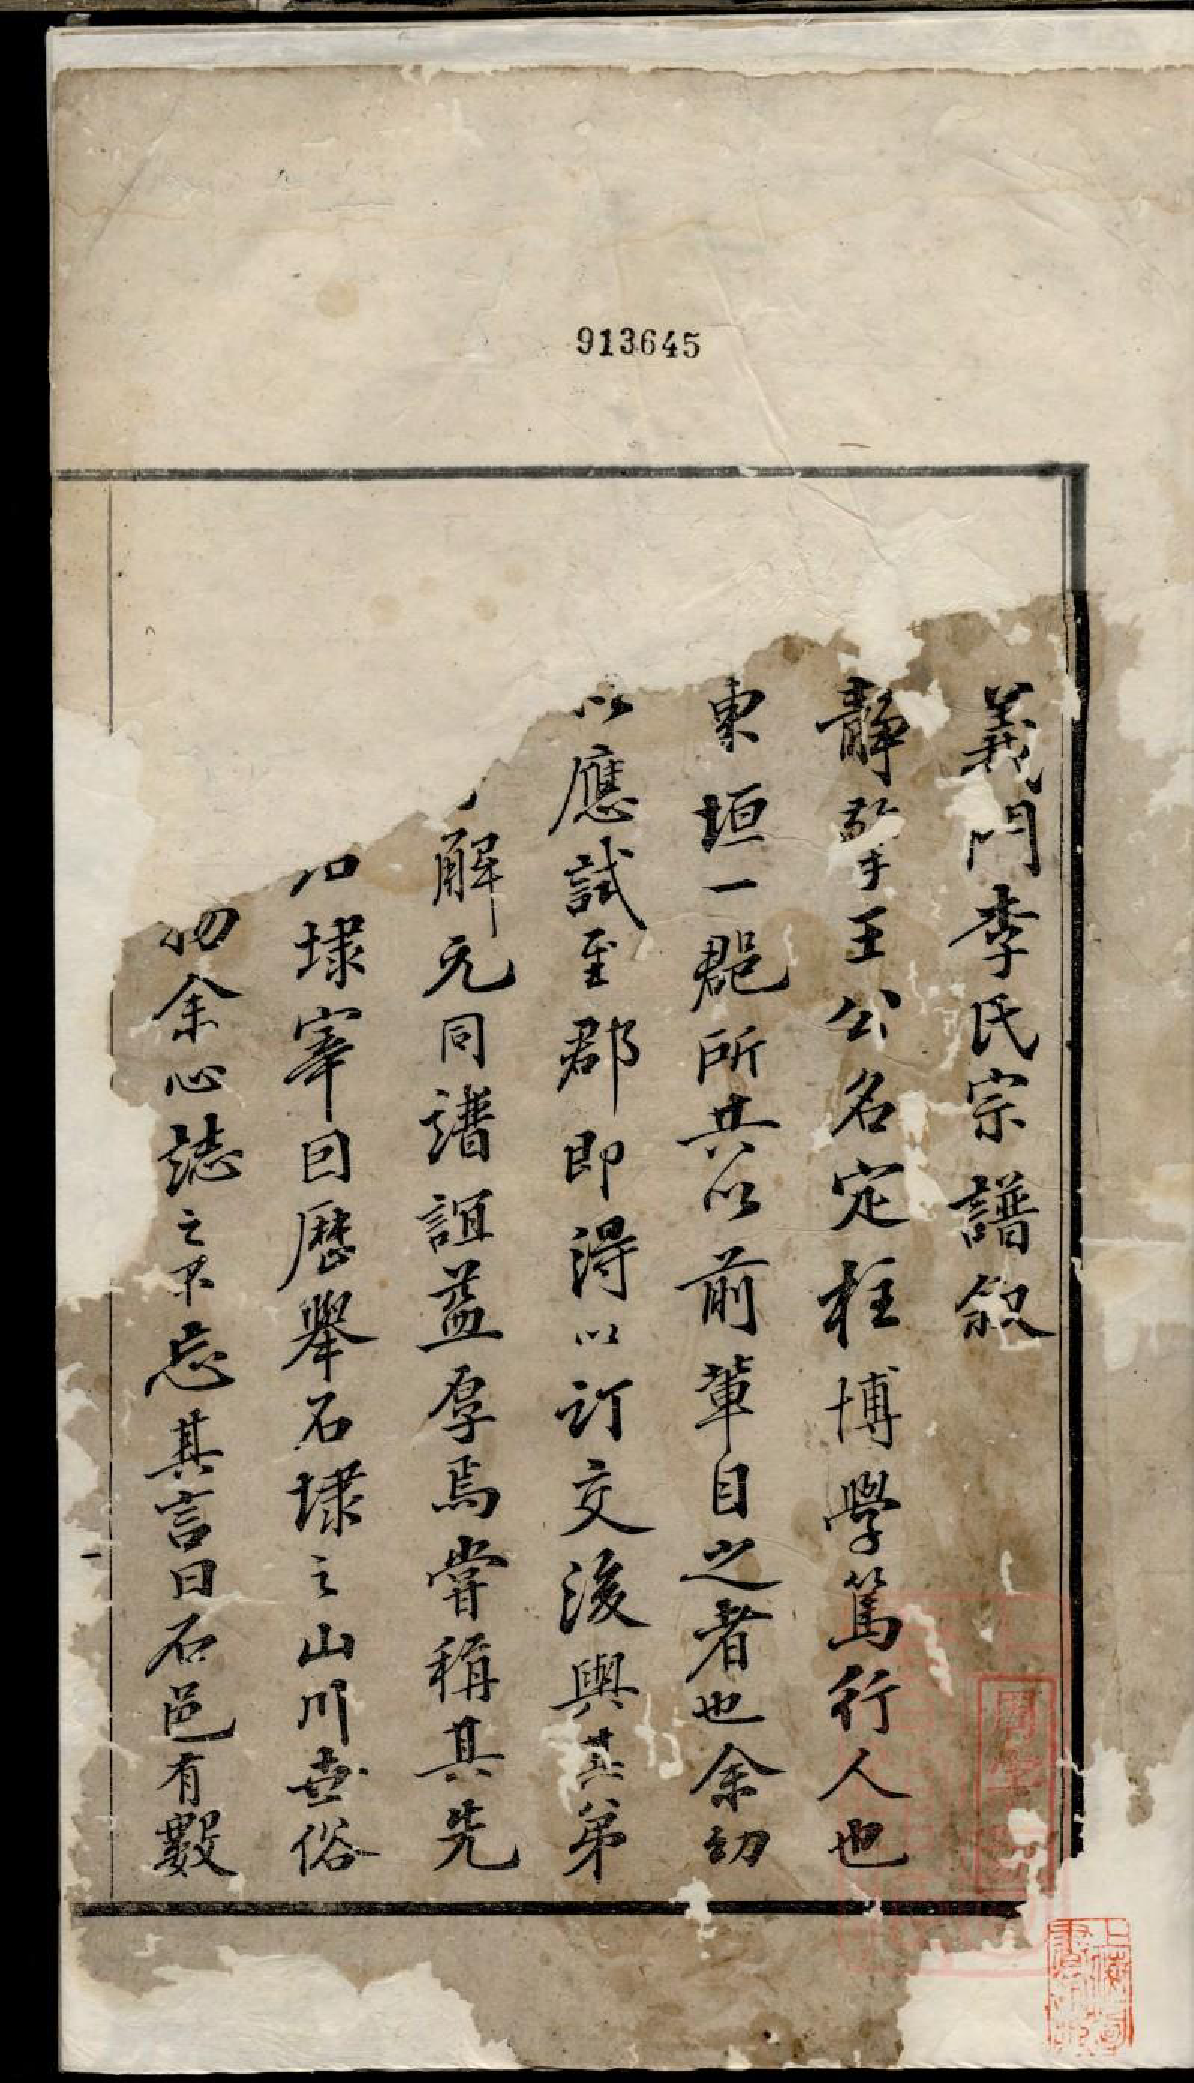 913645
義門李氏宗譜叙
靜擎王公名定柱博學篤行人也
東垣一郡所共以前輩目之者也余幼
以應試至郡即得以訂交後與其弟
解元同譜誼益厚焉嘗稱其先
石埭宰回歷舉石埭之山川土俗
物余心誌之不忘其言曰石邑有數